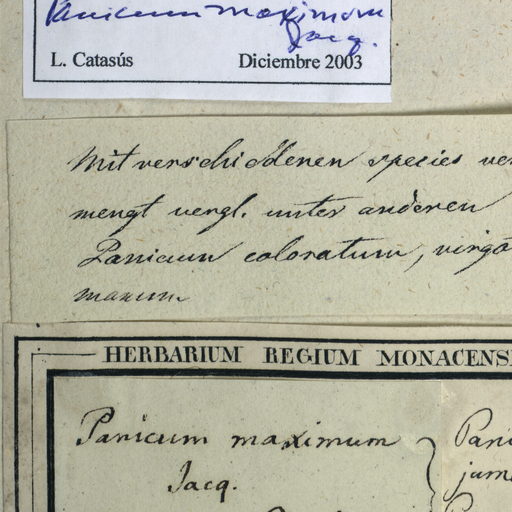 Panicum maximum
Jacq.
L. Catasús Diciembre 2003
Mit verschiedenen species ver
mengt vergl. unter anderen
Panicum coloratum, virga
HERBARIUM REGIUM MONACENS
Panicum maximum
Jacq.
Pani
jum